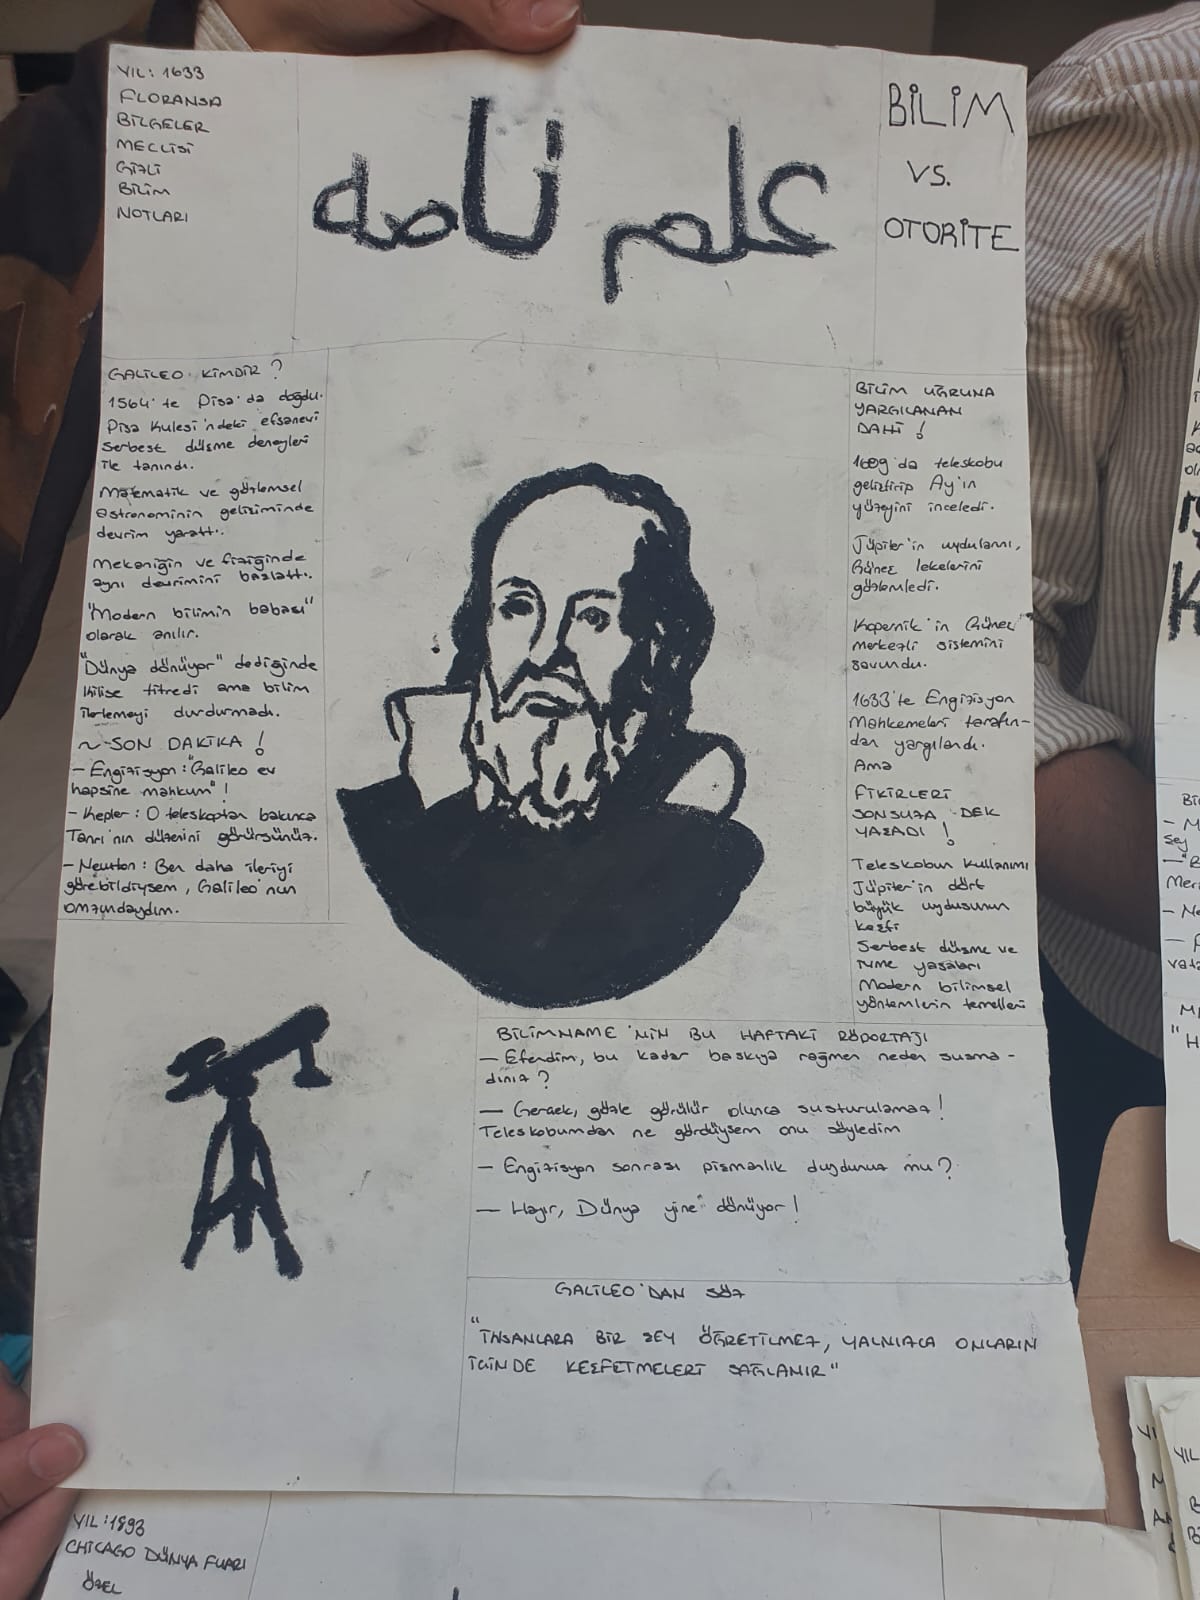 YIL: 1633
FLORANSA
BİLGELER
MECLİSİ
GİZLİ
BİLİM
NOTLARI
علم نامه
BİLİM
VS.
OTORİTE
GALİLEO KİMDİR ?
1564'te Pisa'da doğdu.
Pisa Kulesi'ndeki efsanevi
Serbest düşme deneyleri
ile tanındı.
Matematik ve gözlemsel
astronominin gelişiminde
devrim yarattı.
Mekaniğin ve fiziğinde
aynı devrimini başlattı.
"Modern bilimin babası"
olarak anılır.
"Dünya dönüyor" dediğinde
kilise titredi ama bilim
ilerlemeyi durdurmadı.
~ SON DAKİKA !
- Engizisyon : "Galileo ev
hapsine mahkum" !
- Kepler : O teleskoptan bakınca
Tanrı'nın düzenini görürsünüz.
- Newton : Ben daha ileriyi
görebildiysem, Galileo'nun
omzundaydım.
BİLİM UĞRUNA
YARGILANAN
DAHİ !
1609'da teleskobu
geliştirip Ay'ın
yüzeyini inceledi.
Jüpiter'in uydularını,
Güneş lekelerini
gözlemledi.
Kopernik'in Güneş
merkezli sistemini
savundu.
1633'te Engizisyon
Mahkemeleri tarafın-
dan yargılandı.
Ama
FİKİRLERİ
SONSUZA DEK
YAŞADI !
Teleskobun kullanımı
Jüpiter'in dört
büyük uydusunun
keşfi
Serbest düşme ve
ivme yasaları
Modern bilimsel
yöntemlerin temelleri
BİLİMNAME'NİN BU HAFTAKİ RÖPORTAJI
- Efendim, bu kadar baskıya rağmen neden susma-
dınız ?
- Gerçek, gözle görülür olunca susturulamaz !
Teleskobumdan ne gördüysem onu söyledim
- Engizisyon sonrası pişmanlık duydunuz mu ?
- Hayır, Dünya yine dönüyor !
GALİLEO'DAN SÖZ
"İNSANLARA BİR ŞEY ÖĞRETİLMEZ, YALNIZCA ONLARIN
İÇİNDE KEŞFETMELERİ SAĞLANIR"
YIL : 1893
CHICAGO DÜNYA FUARI
ÖZEL